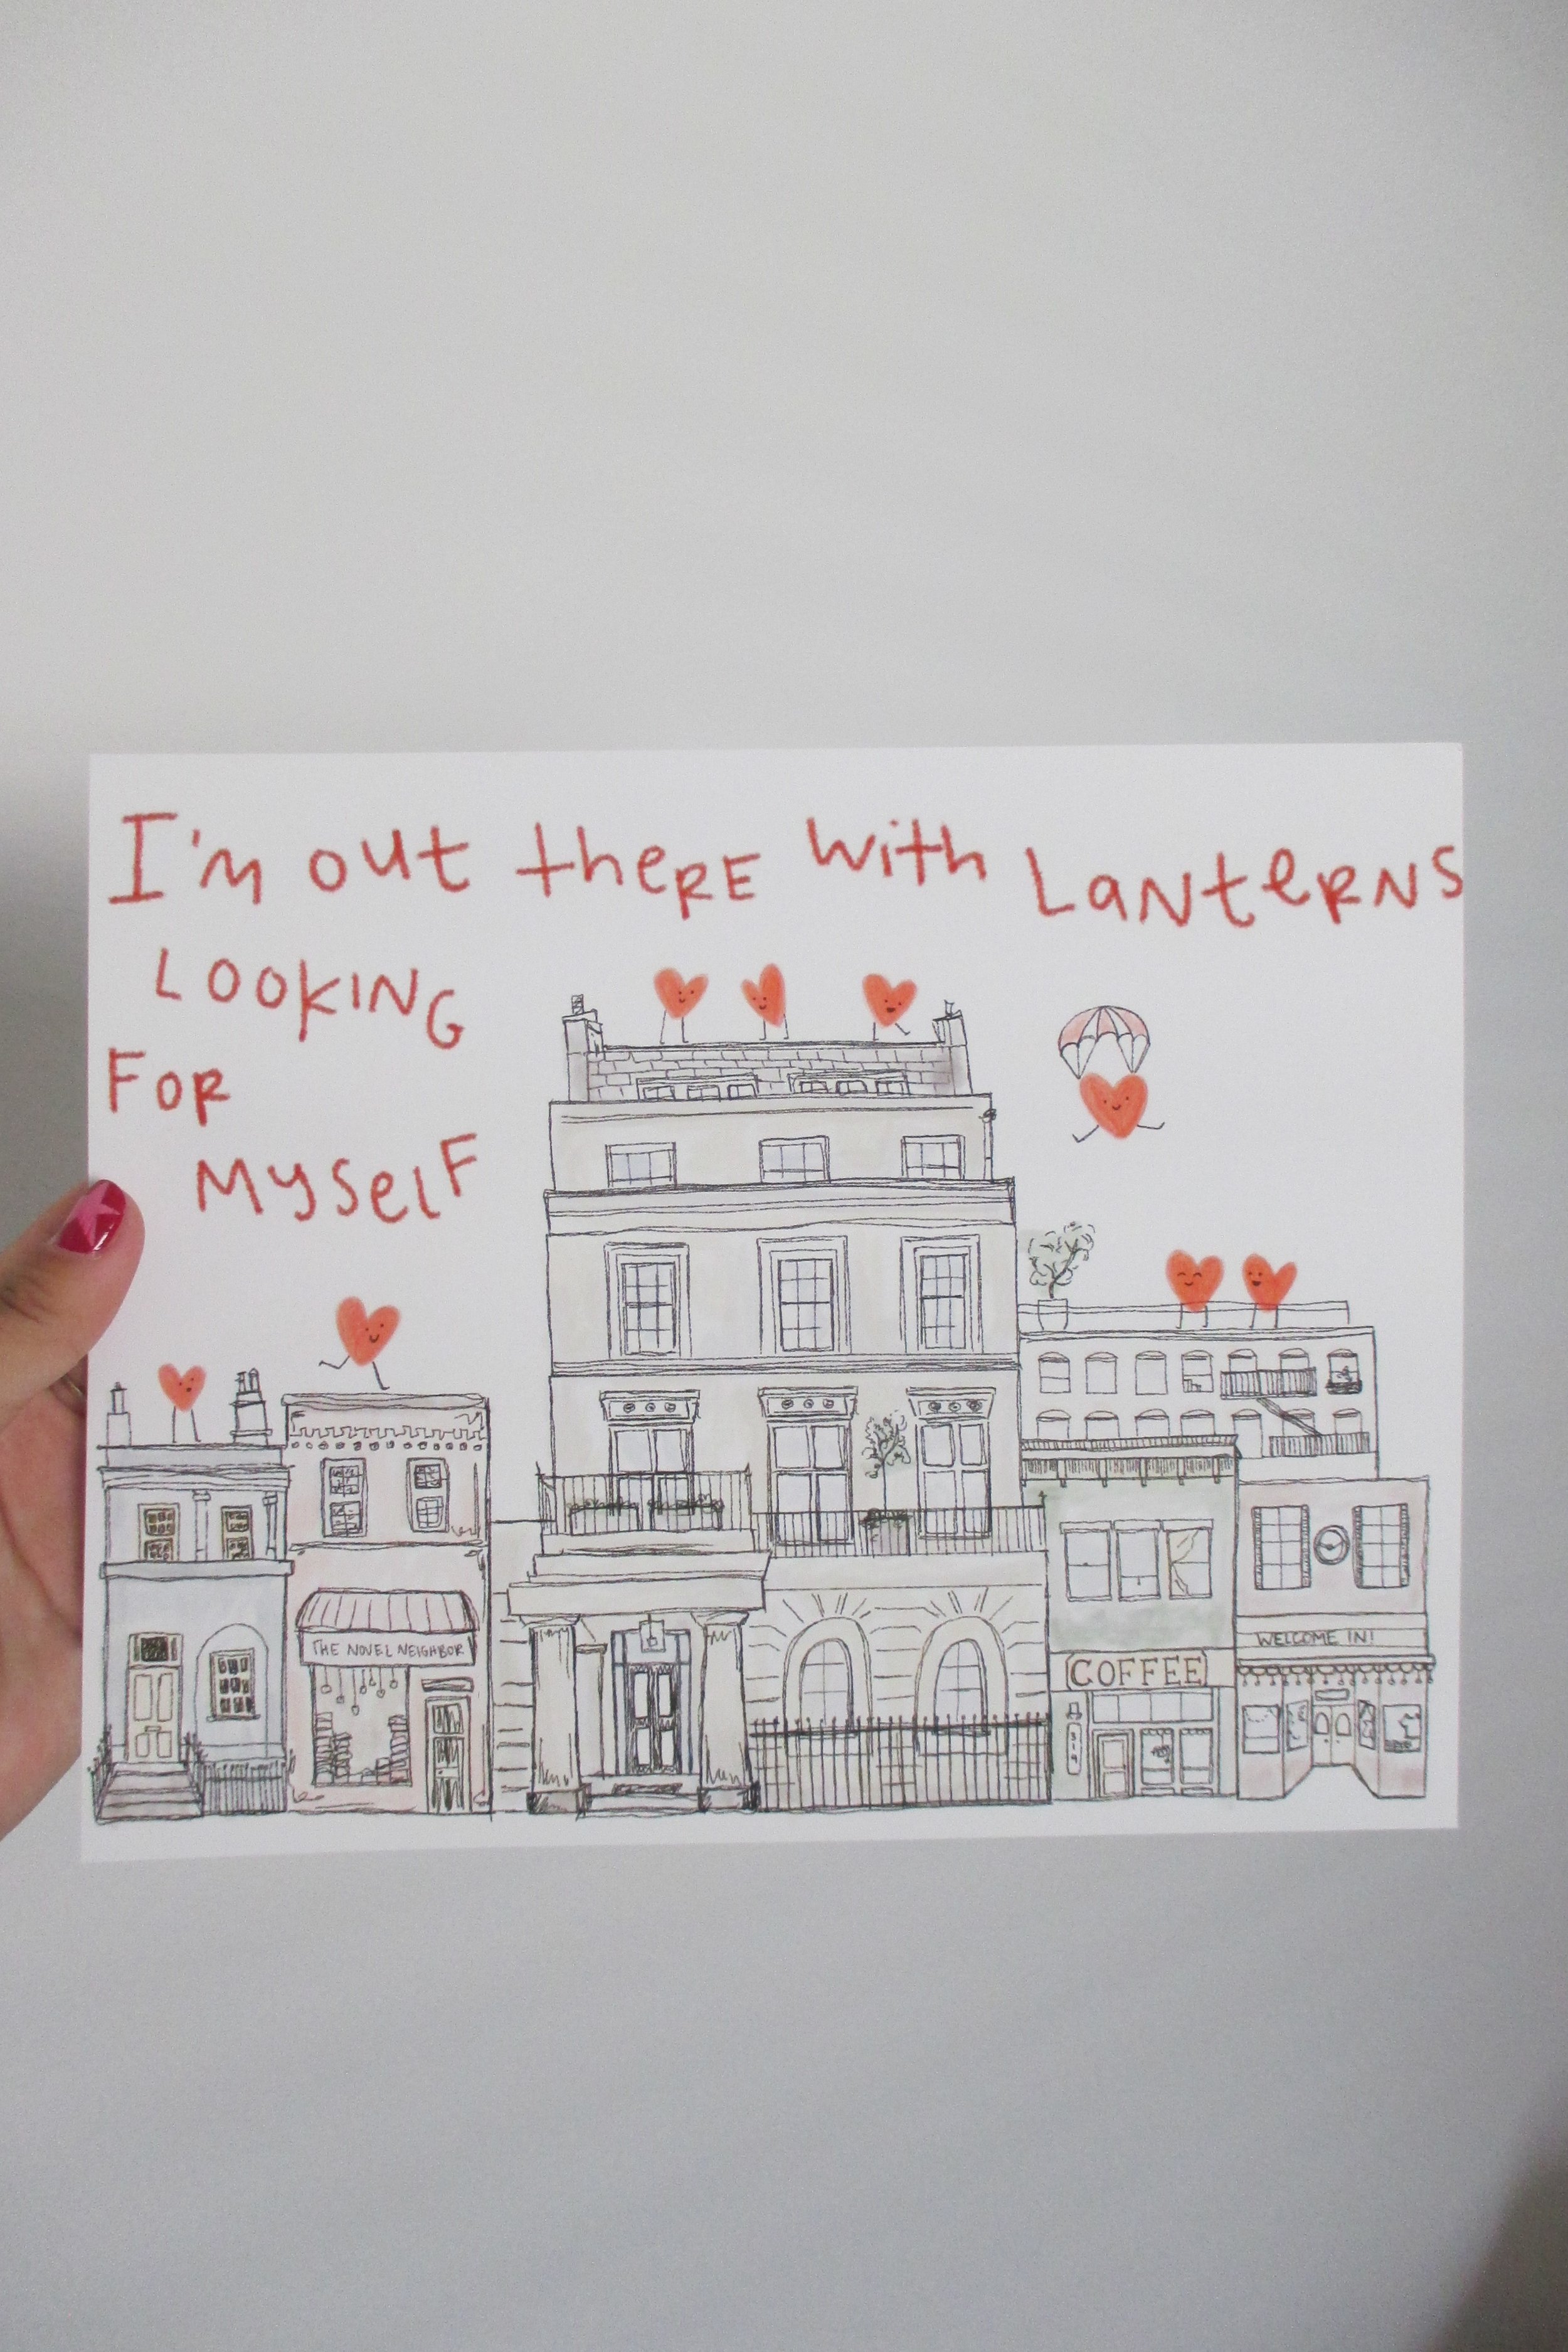 I'm out theRE with LaNteRNS
LOOKING
FOR
MySelF
THE NOVEL NEIGHBOR
COFFEE
WELCOME IN!